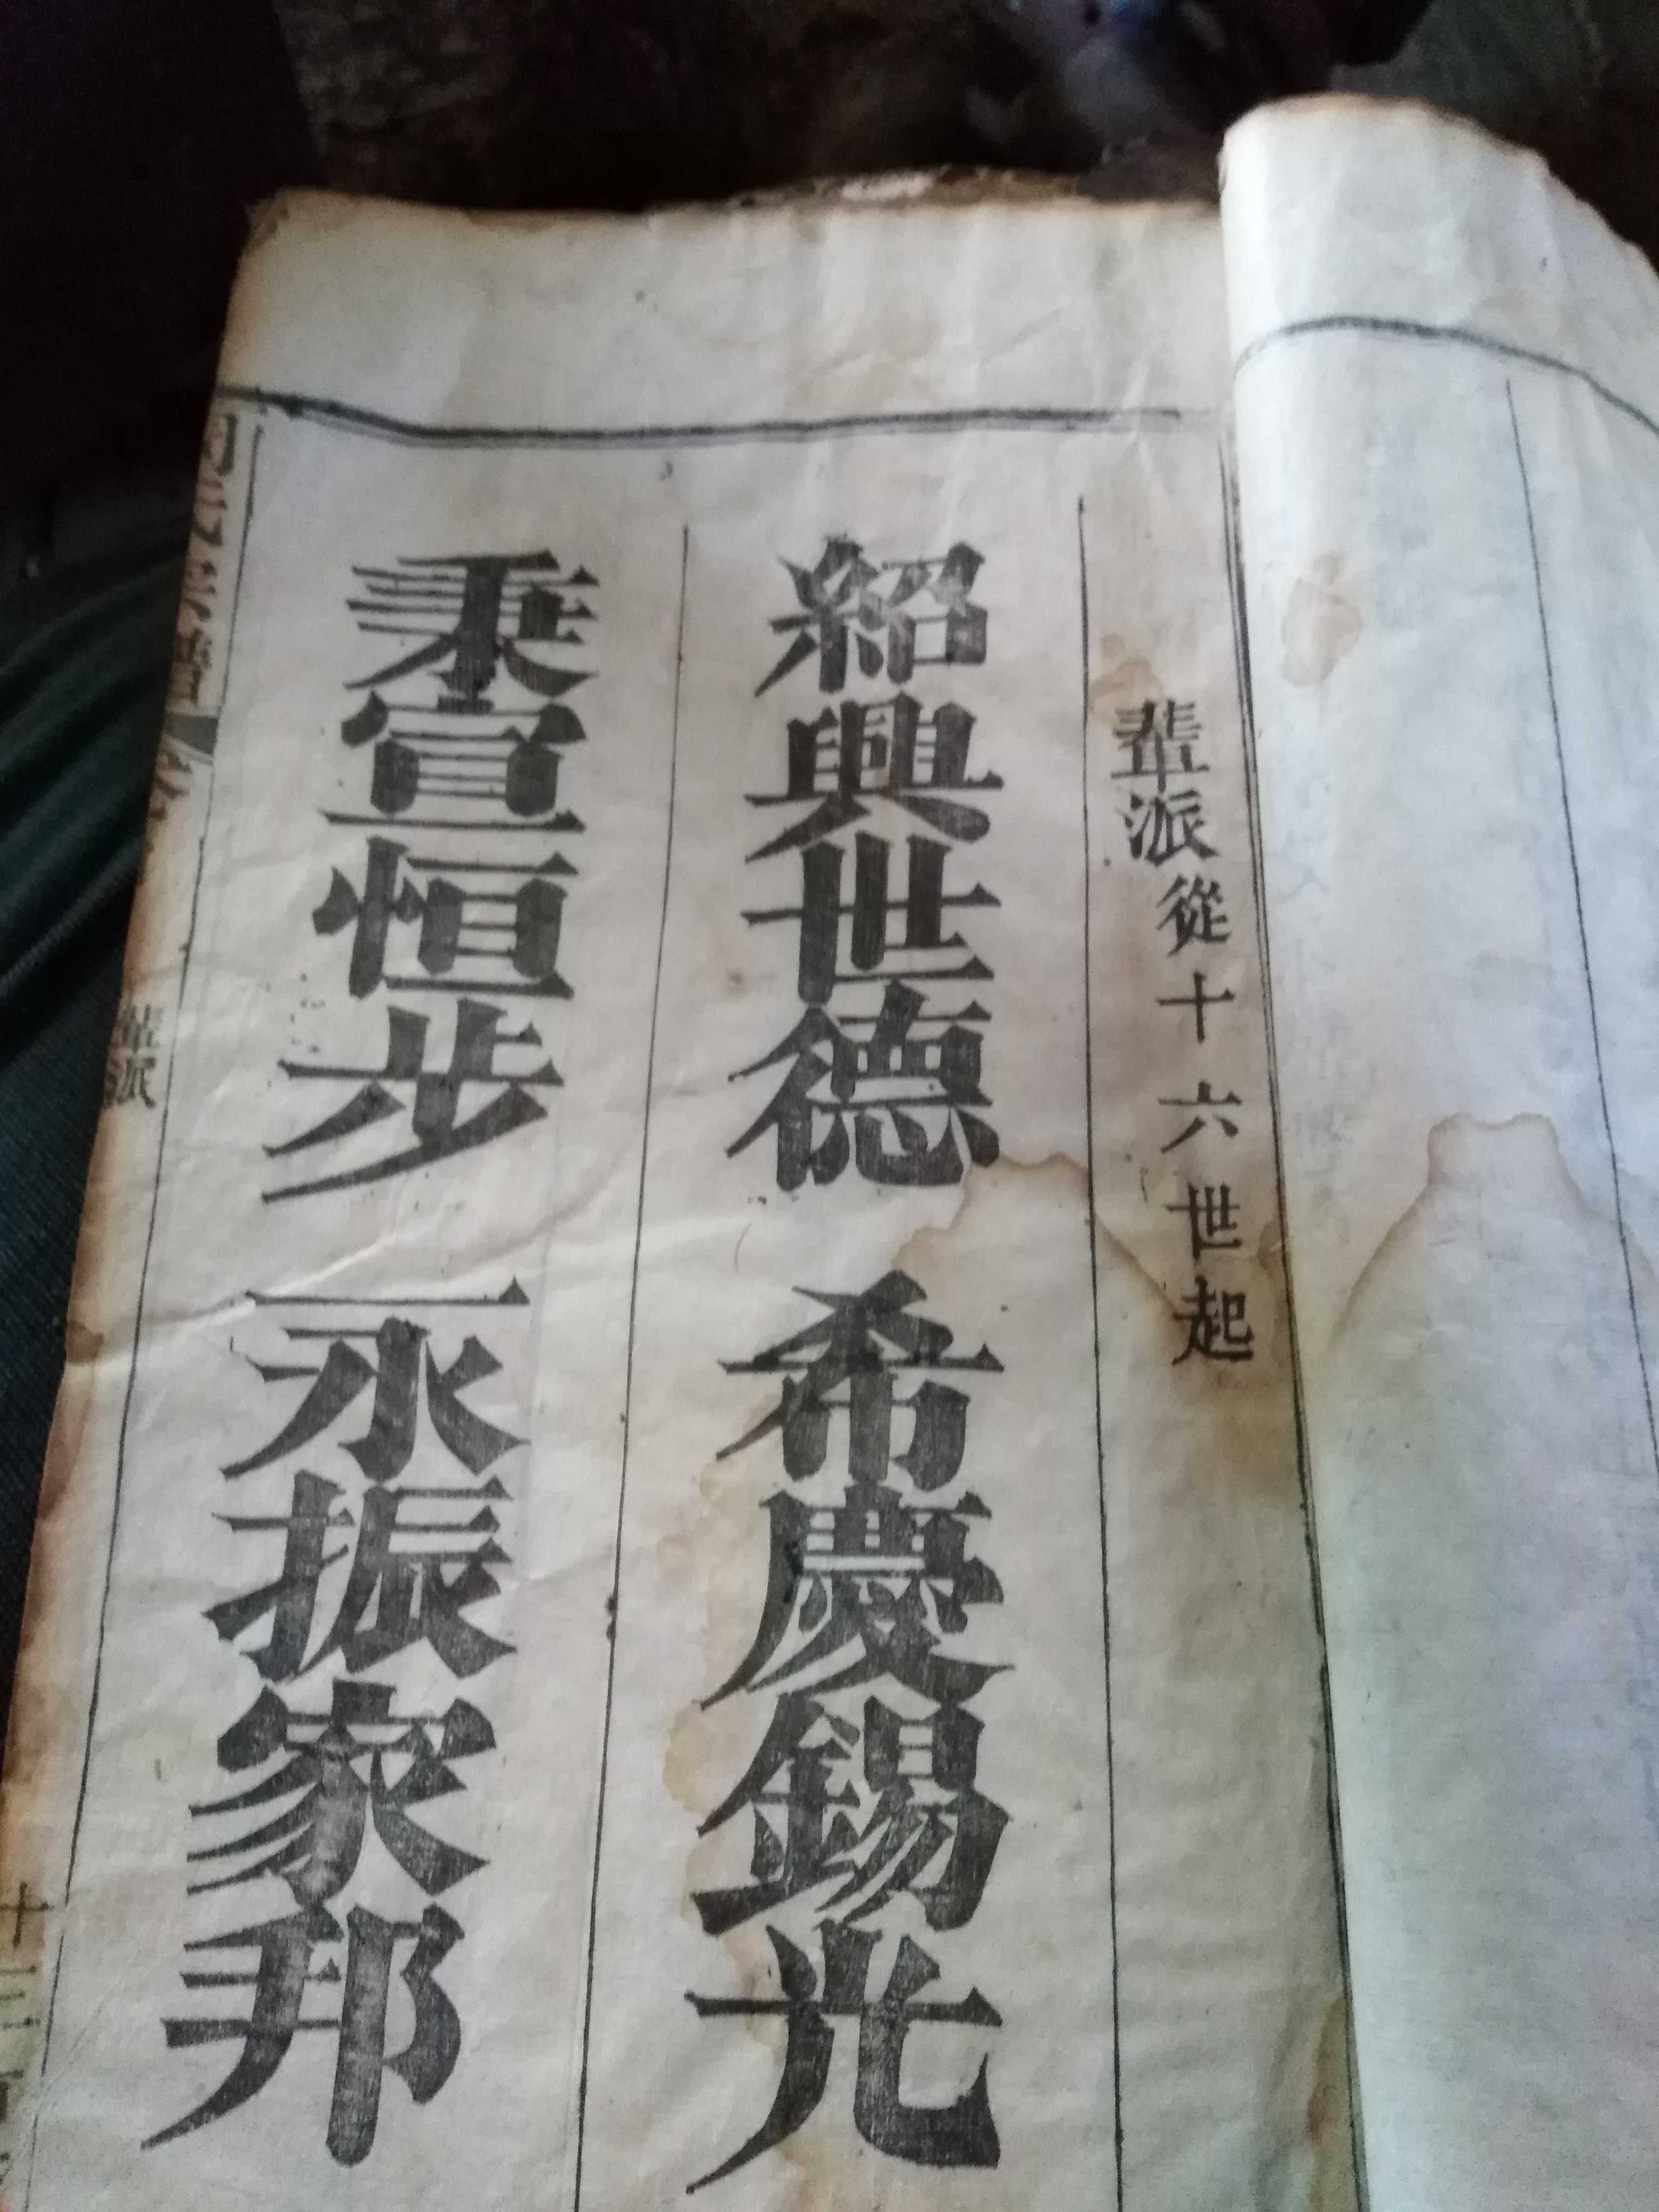 輩派從十六世起
紹興世德 希慶錫光
秉宣恒步 永振家邦
輩派